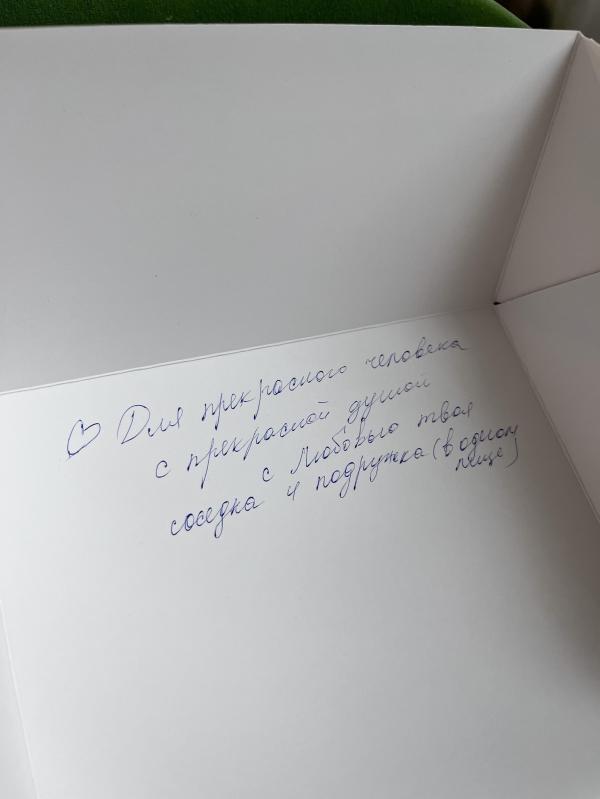 ♡ Для прекрасного человека
с прекрасной душой
с Любовью твоя
соседка и подружка (в одном
лице)